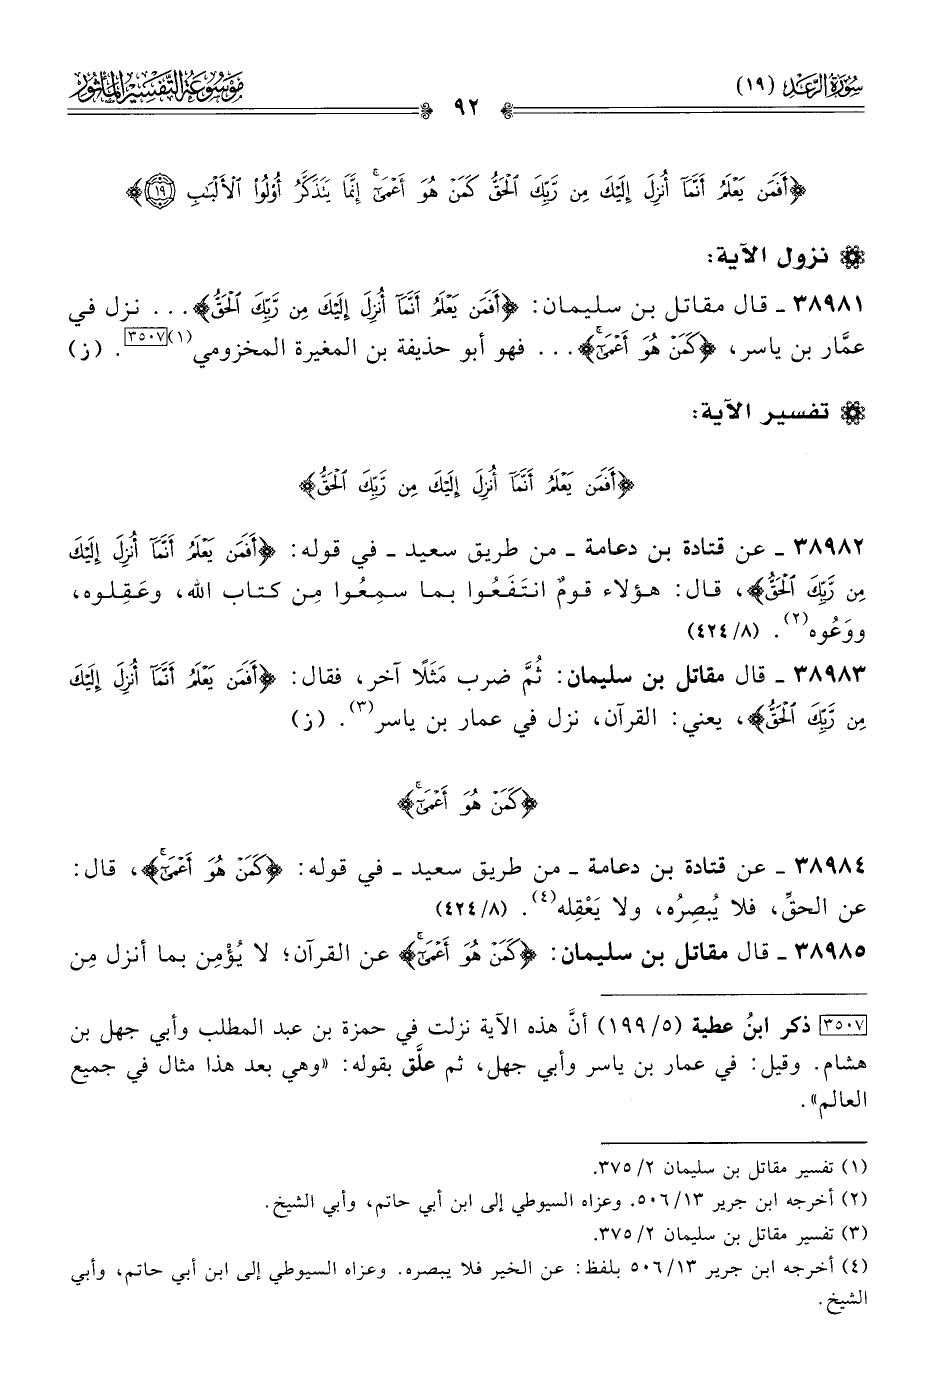 سُورَةُ الرَّعْدِ (١٩)
٩٢
مَوْسُوعَةُ التَّفْسِيرِ المَأْثُورِ
﴿أَفَمَن يَعْلَمُ أَنَّمَآ أُنزِلَ إِلَيْكَ مِن رَّبِّكَ ٱلْحَقُّ كَمَنْ هُوَ أَعْمَىٰٓۚ إِنَّمَا يَتَذَكَّرُ أُو۟لُوا۟ ٱلْأَلْبَٰبِ ١٩﴾
نزول الآية:
٣٨٩٨١ ـ قال مقاتل بن سليمان: ﴿أَفَمَن يَعْلَمُ أَنَّمَآ أُنزِلَ إِلَيْكَ مِن رَّبِّكَ ٱلْحَقُّ﴾... نزل في
عمَّار بن ياسر، ﴿كَمَنْ هُوَ أَعْمَىٰٓۚ﴾... فهو أبو حذيفة بن المغيرة المخزومي(١)[٣٥٠٧]. (ز)
تفسير الآية:
﴿أَفَمَن يَعْلَمُ أَنَّمَآ أُنزِلَ إِلَيْكَ مِن رَّبِّكَ ٱلْحَقُّ﴾
٣٨٩٨٢ ـ عن قتادة بن دعامة ـ من طريق سعيد ـ في قوله: ﴿أَفَمَن يَعْلَمُ أَنَّمَآ أُنزِلَ إِلَيْكَ
مِن رَّبِّكَ ٱلْحَقُّ﴾، قال: هؤلاء قومٌ انتَفَعُوا بما سمِعُوا مِن كتاب الله، وعَقِلوه،
ووَعُوه(٢). (٨/ ٤٢٤)
٣٨٩٨٣ ـ قال مقاتل بن سليمان: ثُمَّ ضرب مَثَلًا آخر، فقال: ﴿أَفَمَن يَعْلَمُ أَنَّمَآ أُنزِلَ إِلَيْكَ
مِن رَّبِّكَ ٱلْحَقُّ﴾، يعني: القرآن، نزل في عمار بن ياسر(٣). (ز)
﴿كَمَنْ هُوَ أَعْمَىٰٓۚ﴾
٣٨٩٨٤ ـ عن قتادة بن دعامة ـ من طريق سعيد ـ في قوله: ﴿كَمَنْ هُوَ أَعْمَىٰٓۚ﴾، قال:
عن الحقِّ، فلا يُبصِرُه، ولا يَعْقِله(٤). (٨/ ٤٢٤)
٣٨٩٨٥ ـ قال مقاتل بن سليمان: ﴿كَمَنْ هُوَ أَعْمَىٰٓۚ﴾ عن القرآن؛ لا يُؤْمِن بما أنزل مِن
[٣٥٠٧] ذكر ابنُ عطية (٥/ ١٩٩) أنَّ هذه الآية نزلت في حمزة بن عبد المطلب وأبي جهل بن
هشام. وقيل: في عمار بن ياسر وأبي جهل، ثم علَّق بقوله: «وهي بعد هذا مثال في جميع
العالم».
(١) تفسير مقاتل بن سليمان ٢/ ٣٧٥.
(٢) أخرجه ابن جرير ١٣/ ٥٠٦. وعزاه السيوطي إلى ابن أبي حاتم، وأبي الشيخ.
(٣) تفسير مقاتل بن سليمان ٢/ ٣٧٥.
(٤) أخرجه ابن جرير ١٣/ ٥٠٦ بلفظ: عن الخير فلا يبصره. وعزاه السيوطي إلى ابن أبي حاتم، وأبي
الشيخ.